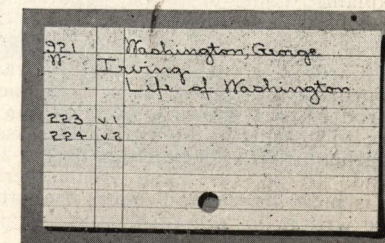 921 Washington, George
W Irving
Life of Washington
223 v.1
224 v.2